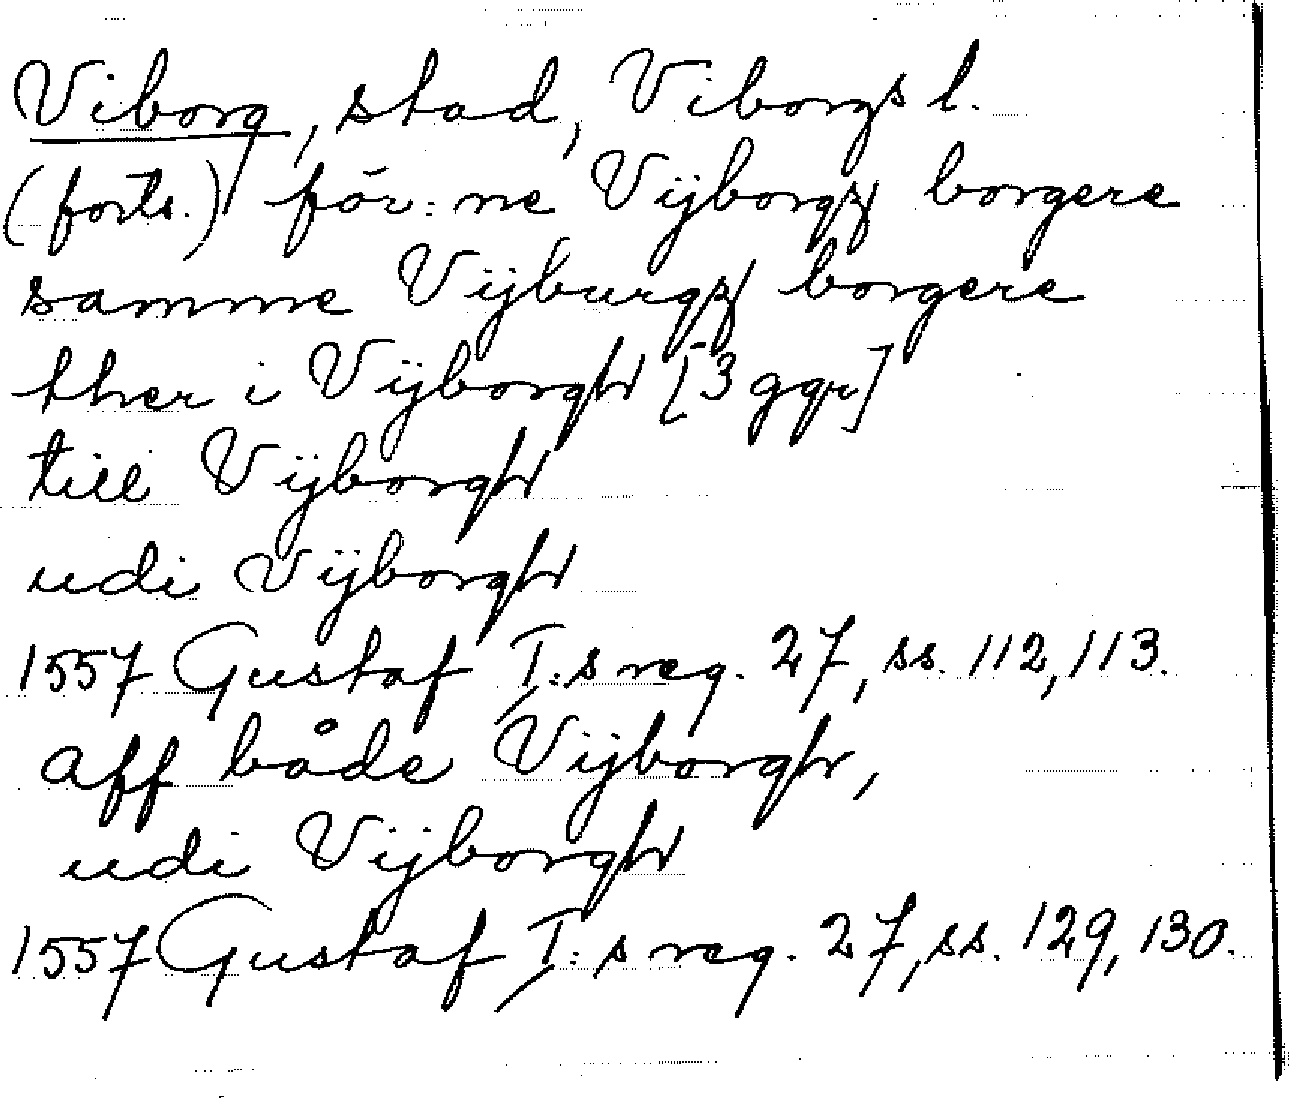 Viborg, stad, Viborgs l.
(forts.) för:ne Vijborgz borgere
samme Vijburgz borgere
ther i Vijborgh [3 ggr]
till Vijborgh
udi Vijborgh
1557 Gustaf I:s reg. 27, ss. 112, 113.
aff både Vijborgh,
udi Vijborgh
1557 Gustaf I:s reg. 27, ss. 129, 130.